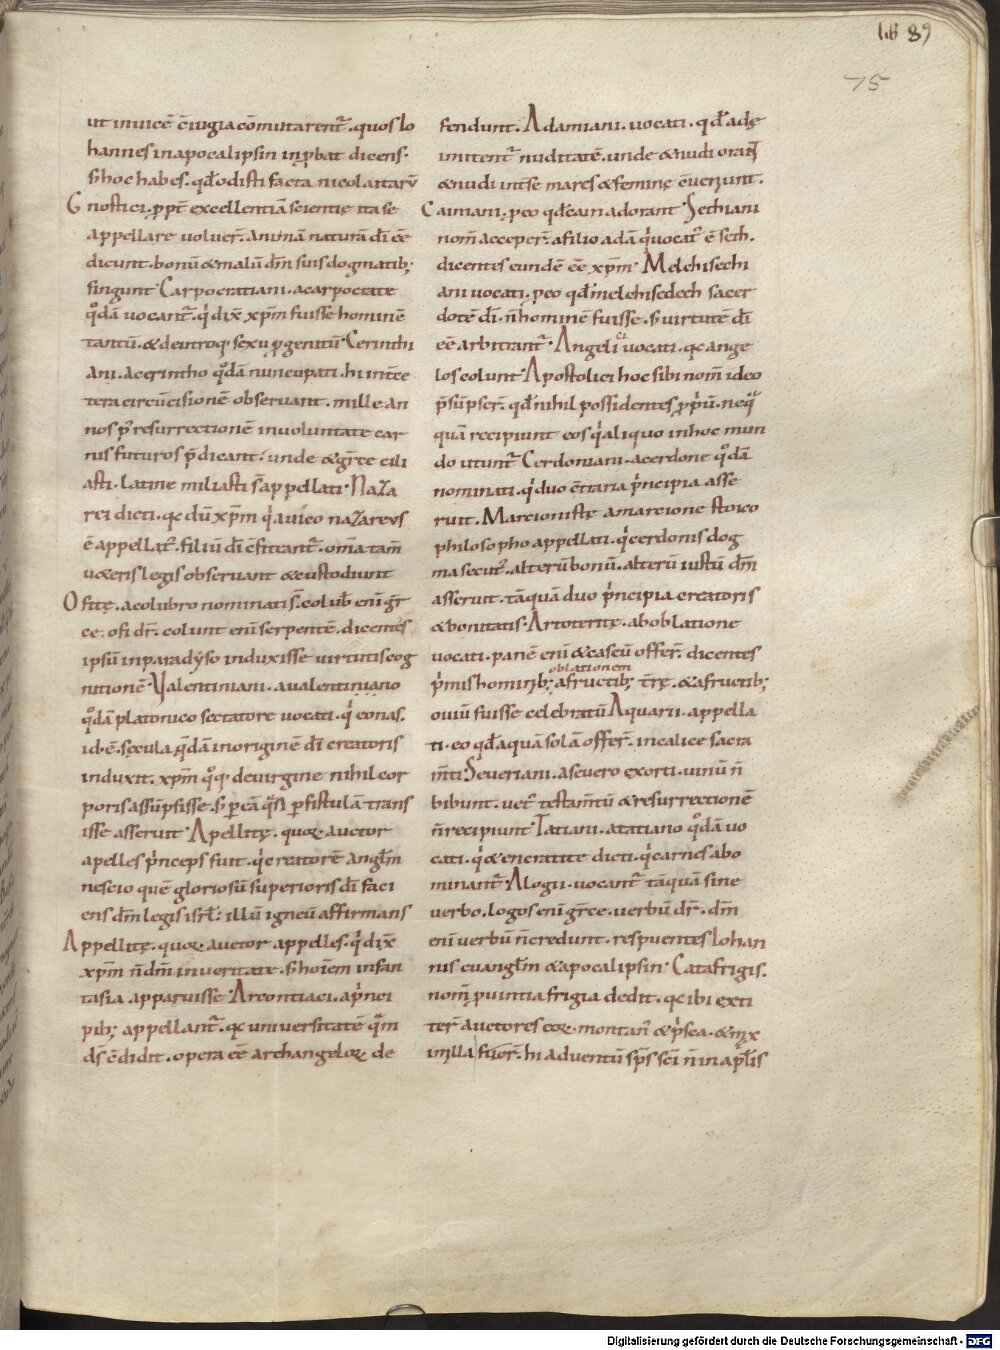 l.b 89
75
ut inuicē c̄iugia cōmutarent᷑. quos Io
hannes in apocalipsin inꝓbat dicens.
S; hoc habes. qđ odisti facta nicolaitarū
Gnostici. ꝓpt̄ excellentiā scientię ita se
appellare uoluer̄. animā naturā dī eē
dicunt. bonū & malū dm̄ suis dogmatib;
fingunt. Carpocratiani. a carpocrate
qͦdā uocant᷑. qͥ dix̄ xp̄m fuisse hominē
tantū. & de utroq; sexu ꝓgenitū. Cerinthi
ani. a cerintho qͦdā nuncupati. hi int̄ cę
tera circūcisionē obseruant. mille an
nos p̄ resurrectionē in uoluntate car
nis futuros p̄dicant. unde & gr̄ce cili
asti. latine miliasti s̄ appellati. Naza
rei dicti. qc dū xp̄m qͥ a uico nazareus
ē appellat᷑. filiū dī c̄fiteant᷑. om̄ia tam̄
ueteris legis obseruant & custodiunt
Ofitę. a colubro nominati s̄. colub̄ eni gr̄
ce. ofi dr̄. colunt eni serpentē. dicentes
ipsū in paradyso induxisse uirtutis cog
nitionē. Valentiniani. a ualentiniano
qͦdā platonico sectatore uocati. qͥ eonas.
id. ē. sęcula q̄dā in originē dī creatoris
induxit. xp̄m qͦq; de uirgine nihil cor
poris assūpsisse. s; p eā qͣsi p fistulā trans
isse asserunt. Apellitę. quoꝝ auctor
apelles pͥnceps fuit. qͥ creatorē angl̄m
nescio quē gloriosū superioris dī faci
ens dm̄ legis isrl̄. illū igneū affirmans
Appellitę. quoꝝ auctor appelles. qͥ dix̄
xp̄m n̄ dm̄ in ueritate. s; hoiēm in fan
tasia apparuisse. Arcontiaci. a pͥnci
pib; appellant᷑. qc uniuersitatē qͣm
ds̄ c̄didit. opera eē archangeloꝝ de
fendunt. Adamiani. uocati. qđ adę
imitent᷑ nuditatē. unde & nudi orant
& nudi int̄ se mares & feminę c̄ueniunt.
Caimani. ꝓeo qđ cain adorant. Sethiani
nom̄ acceper̄. a filio adā qͥ uocat᷑ ē seth.
dicentes eundē eē xp̄m. Melchisechi
ani uocati. ꝓeo qđ melchisedech sacer
dotē dī. n̄ hominē fuisse. s; uirtutē dī
eē arbitrant᷑. Angelici uocati. qc ange
los colunt. Apostolici hoc sibi nom̄ ideo
p̄sūpser̄. qđ nihil possidentes ꝓpͥū. neqͣ
quā recipiunt eos qͥ aliquo in hoc mun
do utunt᷑. Cerdoniani. a cerdone qͦdā
nominati. qͥ duo c̄traria pͥncipia asse
runt. Marcionistę a marcione stoico
philosopho appellati. qͥ cerdonis dog
ma secut᷑. alterū bonū. alterū iustū dm̄
asserunt. tāquā duo pͥncipia creatoris
& bonitatis. Artoteritę. ab oblatione
uocati. panē eni & caseū offer̄. dicentes
oblationem
pͥmis hominib; a fructib; tr̄ę. & a fructib;
ouiū fuisse celebratū. Aquarii. appella
ti. eo qđ aquā solā offer̄. in calice sacra
m̄ti. Seueriani. a seuero exorti. uinū n̄
bibunt. uet᷑ testam̄tū & resurrectionē
n̄ recipiunt. Tatiani. a tatiano qͦdā uo
cati. qͥ & encratite dicti. qͥ carnes abo
minant᷑. Alogii. uocant᷑ tāquā sine
uerbo. logos eni gr̄ce. uerbū dr̄. dm̄
eni uerbū n̄ credunt. respuentes Iohan
nis euangl̄m & apocalipsin. Catafrigis.
nom̄ ꝓuintia frigia dedit. qc ibi exti
ter̄ auctores eoꝝ. montan᷒ & pͥsca. &
in illa fuer̄. hi aduentū sp̄s sc̄i n̄ in apl̄is